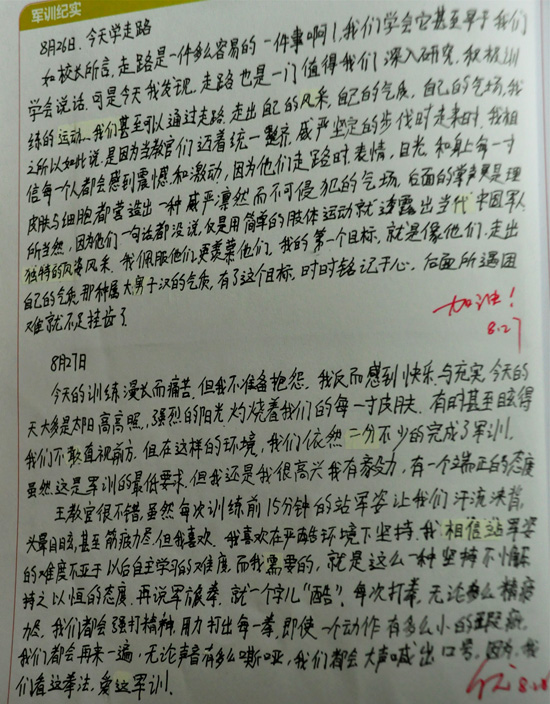 军训纪实
8月26日.今天学走路
如校长所言,走路是一件多么容易的一件事啊!,我们学会它甚至早于我们
学会说话.可是今天我发现,走路也是一门值得我们深入研究,积极训
练的运动...我们甚至可以通过走路,走出自己的风采,自己的气质,自己的气场,我
之所以如此说,是因为当教官们迈着统一整齐,威严坚定的步伐时走来时,我相
信每一个人都会感到震憾和激动,因为他们走路时,表情,目光,和身上每一寸
皮肤与细胞都营造出一种威严凛然而不可侵犯的气场,后面的掌声果是理
所当然,因为他们一句话都没说,仅是用简单的肢体运动就透露出当代中国军人
独特的风姿风采.我佩服他们,更羡慕他们,我的第一个目标,就是像他们,走出
自己的气质,那种属大男子汉的气质,有了这个目标,时时铭记于心,后面所遇困
难就不足挂齿了.
加油!
8.27
8月27日
今天的训练漫长而痛苦.但我不准备抱怨.我反而感到快乐与充实,今天的
天大多是太阳高高照,强烈的阳光灼烧着我们的每一寸皮肤.有时甚至眩得
我们不敢直视前方.但在这样的环境,我们依然一分不少的完成了军训.
虽然,这是军训的最低要求,但我还是我很高兴我有毅力,有一个端正的态度
王教官很不错,虽然每次训练前15分钟的站军姿让我们汗流浃背,
头晕目眩,甚至筋疲力尽.但我喜欢.我喜欢在严酷环境下坚持.我相信站军姿
的难度不亚于以后自主学习的难度.而我需要的,就是这么一种坚持不懈
持之以恒的态度.再说军旅拳.就一个字儿"酷".每次打拳,无论多么精疲
力尽,我们都会强打精神.用力打出每一拳,即使一个动作有多么小的瑕疵,
我们都会再来一遍,无论声音有多么嘶哑,我们都会大声喊出口号,因为,我
们爱这拳法,爱这军训.
8.28